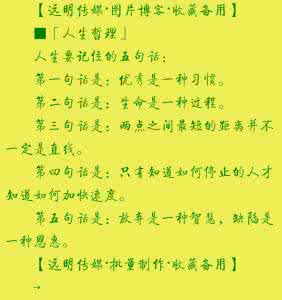 【远明传媒·图片博客·收藏备用】
■「人生哲理」
人生要记住的五句话：
第一句话是：优秀是一种习惯。
第二句话是：生命是一种过程。
第三句话是：两点之间最短的距离并不
一定是直线。
第四句话是：只有知道如何停止的人才
知道如何加快速度。
第五句话是：放弃是一种智慧，缺陷是
一种恩惠。
【远明传媒·批量制作·收藏备用】
→